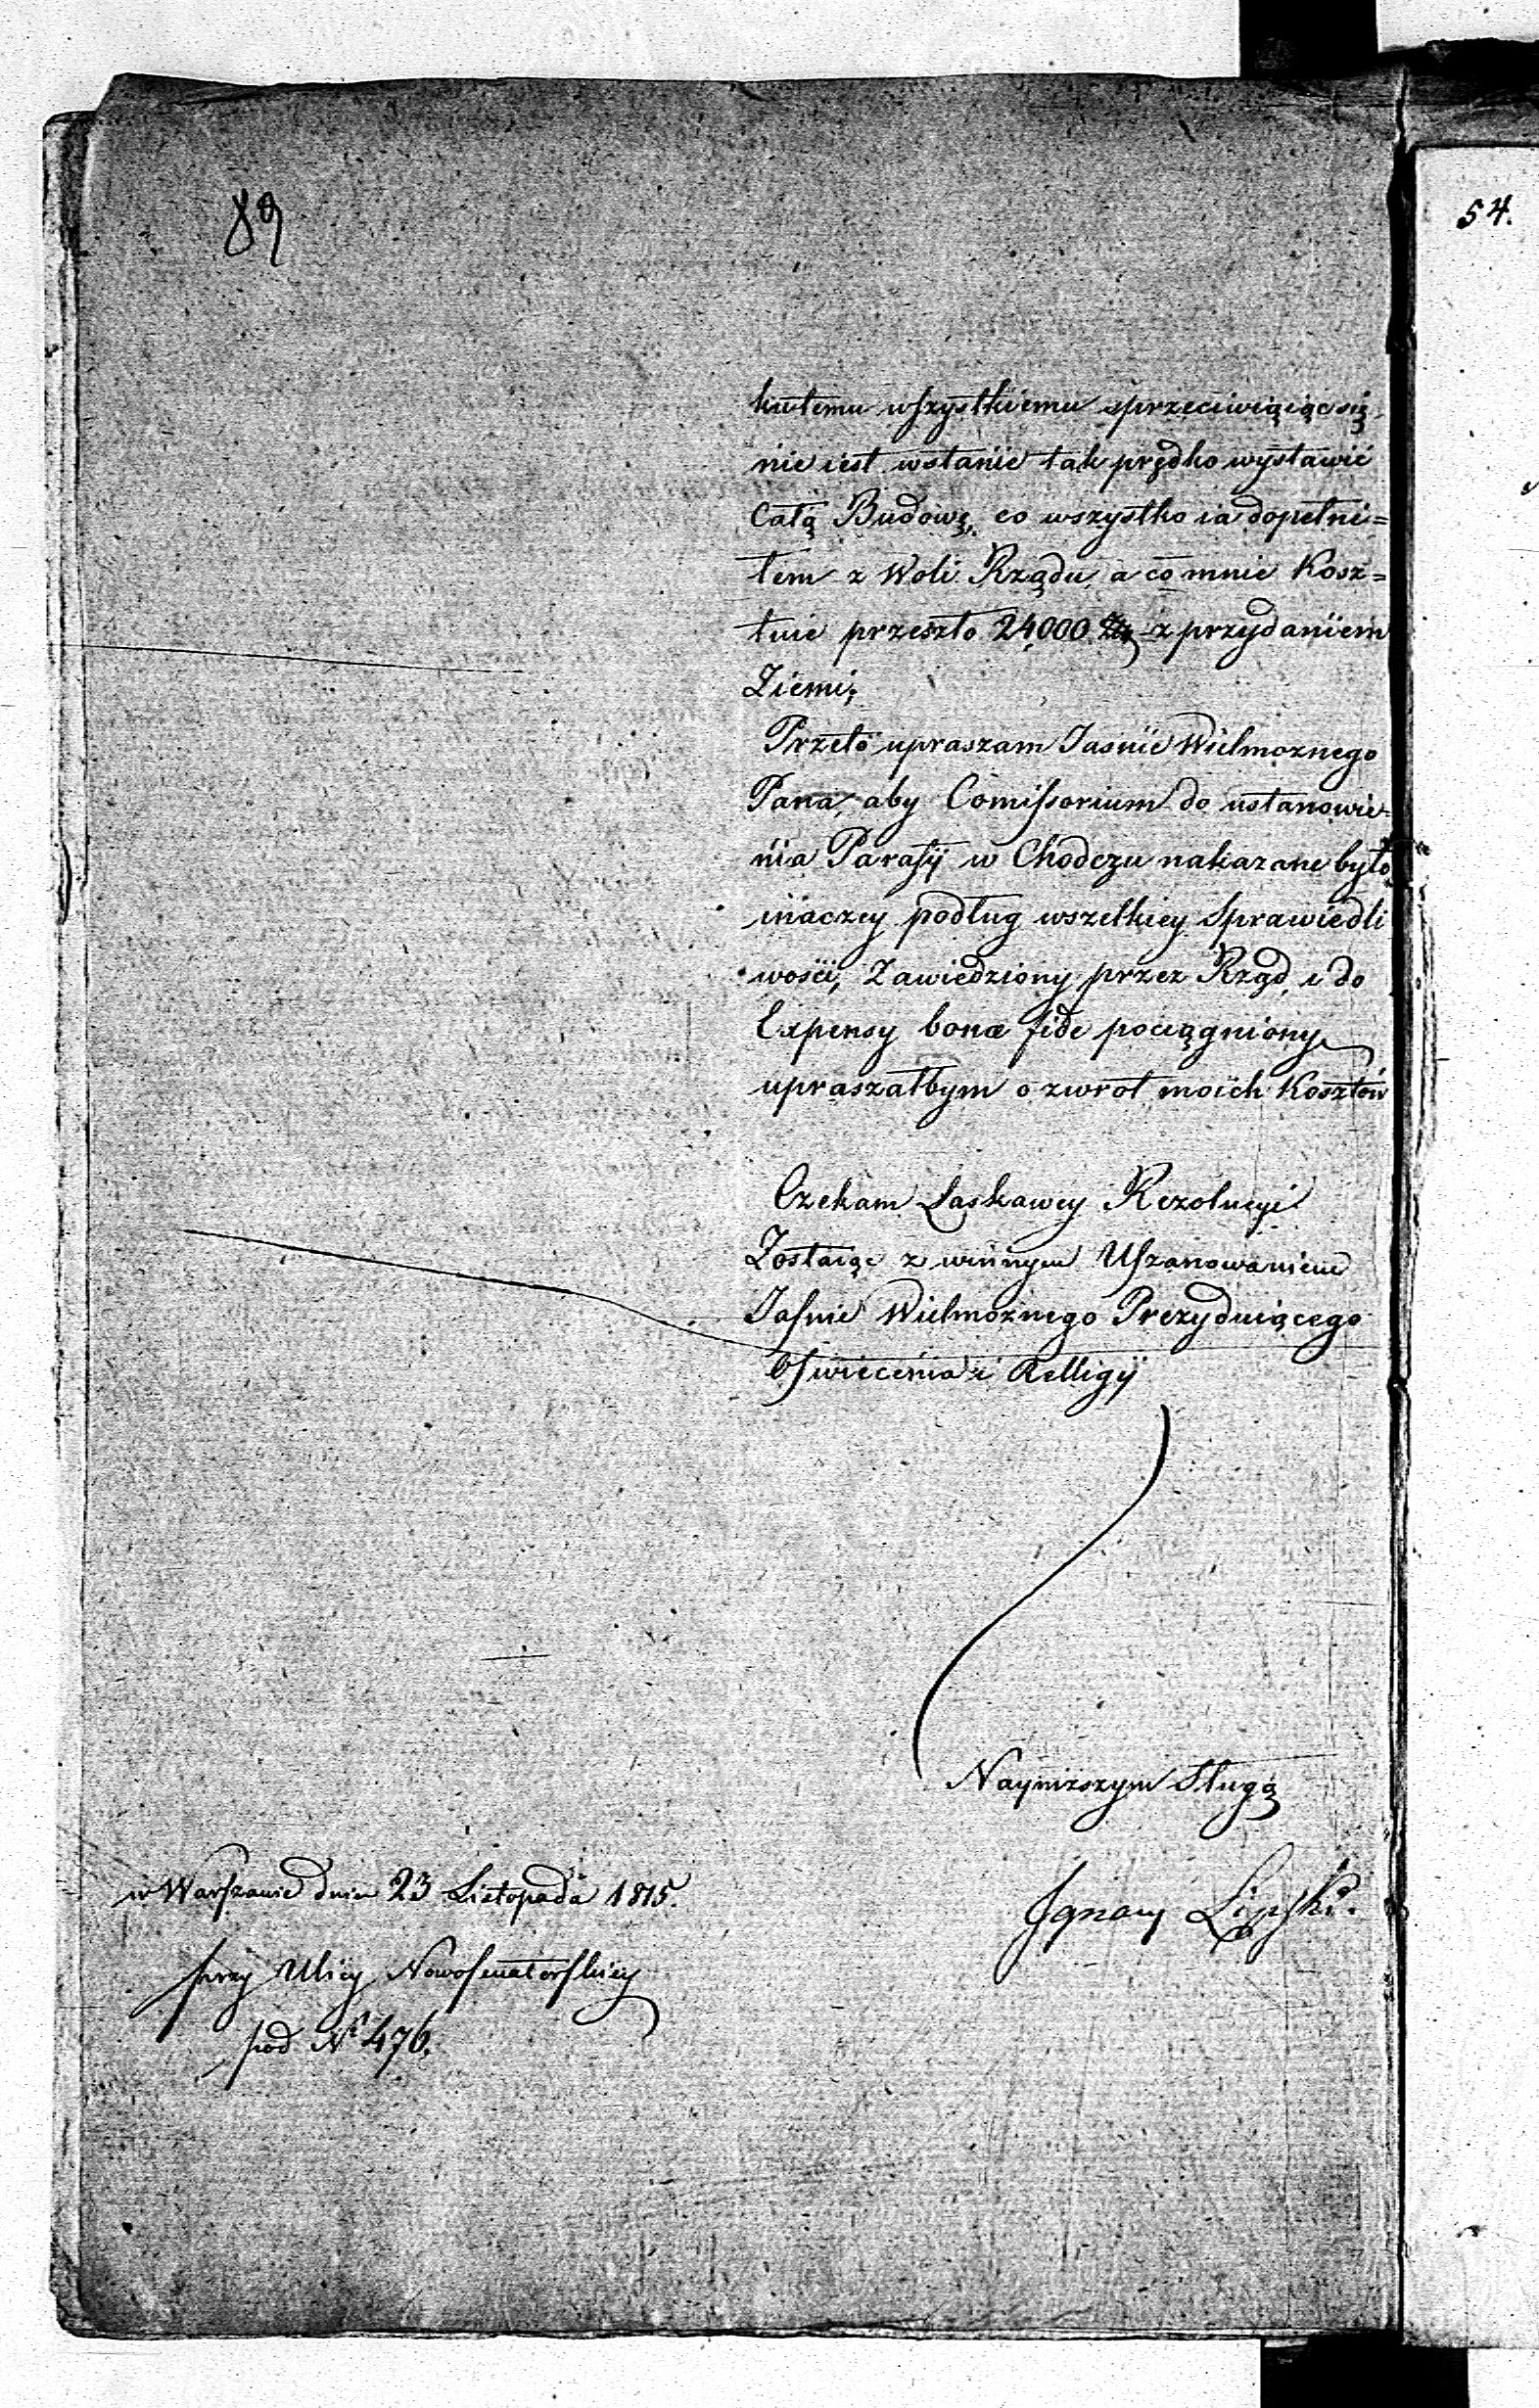 89
54.
kutemu wszystkiemu sprzeciwiąiąc się,
nie iest wstanie tak prędko wystawić
Całą Budowę, co wszystko ia dopełni=
łem z Woli Rządu, a co mnie Kosz=
tuie przeszło 24,000 Złp z przydaniem
Ziemi;
Przeto upraszam Jasnie Wielmoznego
Pana, aby Comissorium do ustanowie=
nia Parafij w Chodczu nakazane było
inaczey podług wszelkiey Sprawiedli
wości, Zawiedziony przez Rząd, i do
Expensy bonæ fide pociągniony
upraszałbym o zwrot moich Kosztów
Czekam Łaskawey Rezolucyi
Zostaiąc z winnym Uszanowaniem
Jasnie Wielmożnego Prezyduiącego
Oswiecenia i Relligij
Nayniższym Sługą
Ignacy Lipski.
w Warszawie dnia 23 Listopada 1815.
przy Ulicy Nowosenatorskiey
pod N 476.